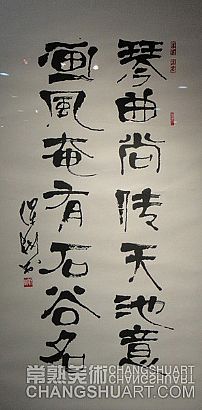 琴曲尚传天池意
画风奄有石谷名
常熟美術 CHANGSHUART
CHANGSHUART.COM